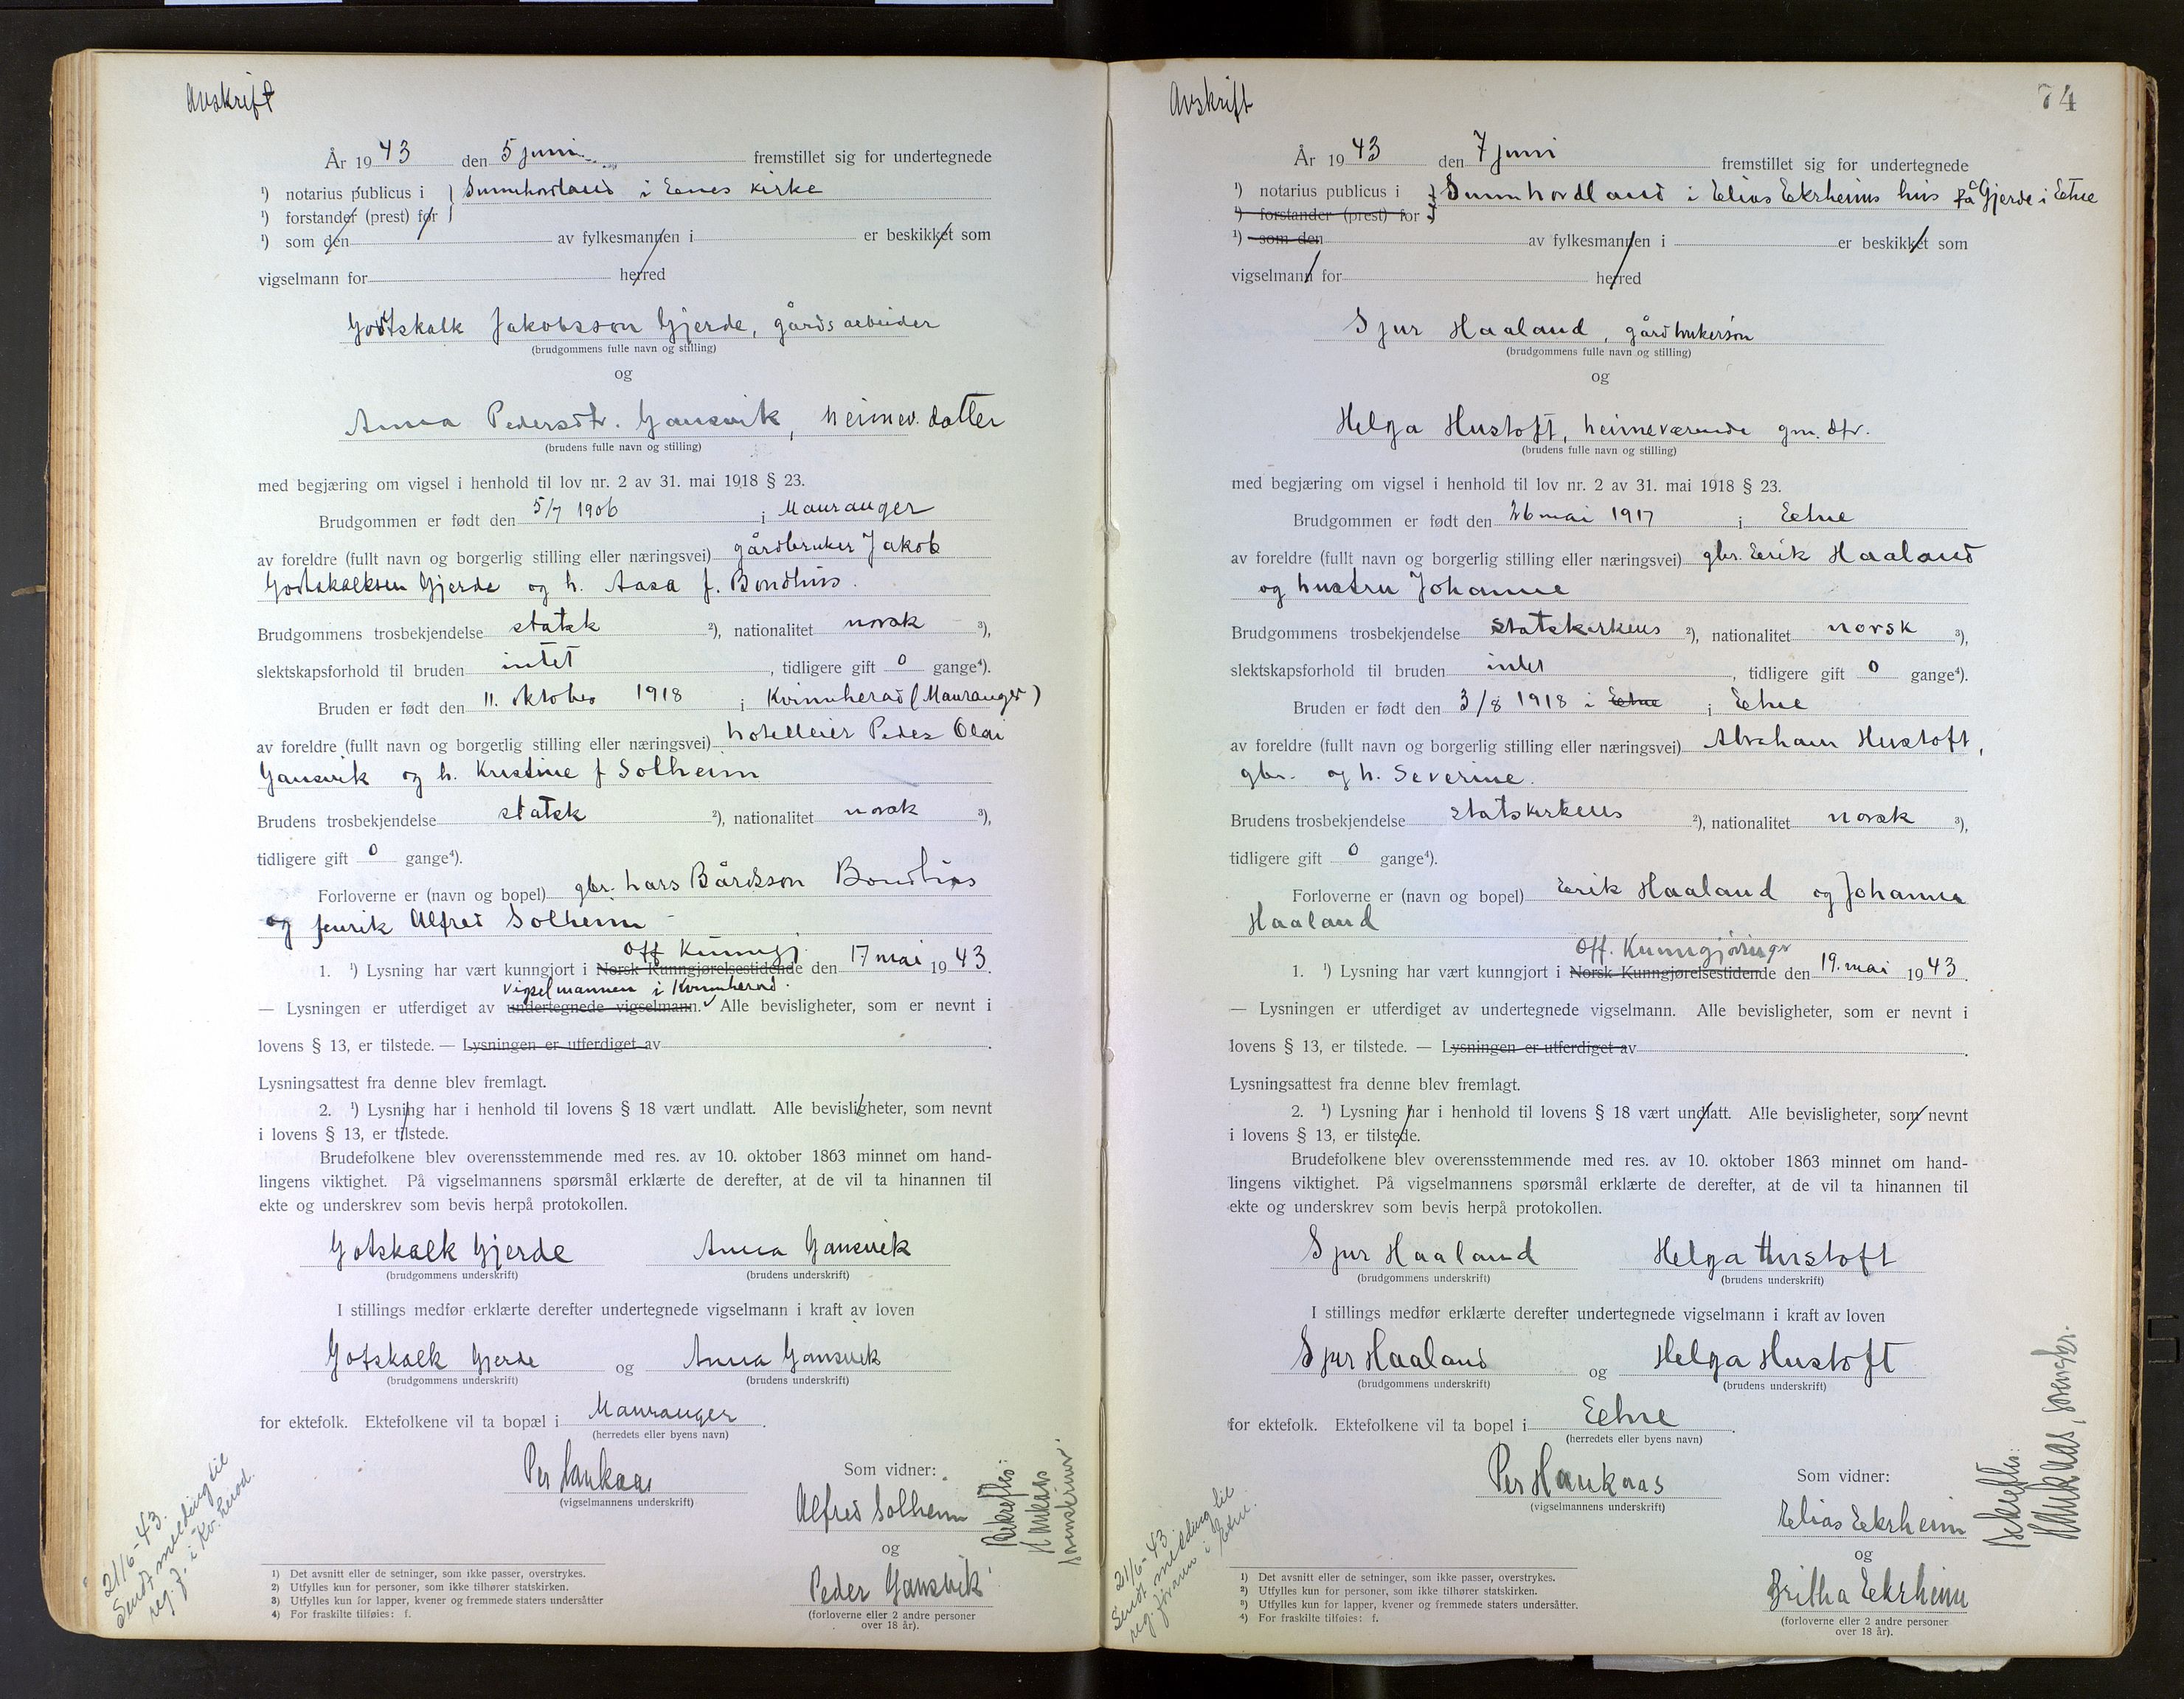 Avskrift
År 1943 den 5 juni fremstillet sig for undertegnede
¹) notarius publicus i } Sunnhordland i Eenes kirke
¹) forstander (prest) for
¹) som den av fylkesmannen i er beskikket som
vigselmann for herred
Gotskalk Jakobsson Gjerde, gårdsarbeider
(brudgommens fulle navn og stilling)
og
Anna Pedersdtr. Gansvik, heimev. datter
(brudens fulle navn og stilling)
med begjæring om vigsel i henhold til lov nr. 2 av 31. mai 1918 § 23.
Brudgommen er født den 5/7 1906 i Mauranger
av foreldre (fullt navn og borgerlig stilling eller næringsvei) gårdbruker Jakob
Gotskalksen Gjerde og h. Aasa f. Bondhus.
Brudgommens trosbekjendelse statsk ²), nationalitet norsk ³),
slektskapsforhold til bruden intet, tidligere gift 0 gange⁴).
Bruden er født den 11. oktober 1918 i Kvinnherad (Mauranger)
av foreldre (fullt navn og borgerlig stilling eller næringsvei) hotelleier Peder Olai
Gansvik og h. Kristine f Solheim
Brudens trosbekjendelse statsk ²), nationalitet norsk ³),
tidligere gift 0 gange⁴).
Forloverne er (navn og bopel) gbr. Lars Bårdsson Bondhus
og fenrik Alfred Solheim
Off Kunngj.
1. ¹) Lysning har vært kunngjort i Norsk Kunngjørelsestidende den 17 mai 1943.
vigselmannen i Kvinnherad.
— Lysningen er utferdiget av undertegnede vigselmann. Alle bevisligheter, som er nevnt i
lovens § 13, er tilstede. — Lysningen er utferdiget av
Lysningsattest fra denne blev fremlagt.
2. ¹) Lysning har i henhold til lovens § 18 vært undlatt. Alle bevisligheter, som nevnt
i lovens § 13, er tilstede.
Brudefolkene blev overensstemmende med res. av 10. oktober 1863 minnet om hand-
lingens viktighet. På vigselmannens spørsmål erklærte de derefter, at de vil ta hinannen til
ekte og underskrev som bevis herpå protokollen.
Gotskalk Gjerde Anna Gansvik
(brudgommens underskrift) (brudens underskrift)
I stillings medfør erklærte derefter undertegnede vigselmann i kraft av loven
Gotskalk Gjerde og Anna Gansvik
(brudgommens underskrift) (brudens underskrift)
for ektefolk. Ektefolkene vil ta bopæl i Mauranger.
(herredets eller byens navn)
Per Haukaas
(vigselmannens underskrift)
Som vidner:
Alfred Solheim
og
Peder Gansvik
(forloverne eller 2 andre personer
over 18 år).
Bekreftes:
Haukaas
sorenskriver
21/6-43.
Sendt melding til
reg.f. i Kv.herad.
1) Det avsnitt eller de setninger, som ikke passer, overstrykes.
2) Utfylles kun for personer, som ikke tilhører statskirken.
3) Utfylles kun for lapper, kvener og fremmede staters undersåtter
4) For fraskilte tilføies: f.
Avskrift
74
År 1943 den 7 juni fremstillet sig for undertegnede
¹) notarius publicus i } Sunnhordland i Elias Eekrheims hus på Gjerde i Etne
¹) forstander (prest) for
¹) som den av fylkesmannen i er beskikket som
vigselmann for herred
Sjur Haaland, gårdbrukersøn
(brudgommens fulle navn og stilling)
og
Helga Hustoft, heimeværende gm. dtr.
(brudens fulle navn og stilling)
med begjæring om vigsel i henhold til lov nr. 2 av 31. mai 1918 § 23.
Brudgommen er født den 26 mai 1917 i Etne
av foreldre (fullt navn og borgerlig stilling eller næringsvei) gbr. Eerik Haaland
og hustru Johanne
Brudgommens trosbekjendelse statskirkens ²), nationalitet norsk ³),
slektskapsforhold til bruden intet, tidligere gift 0 gange⁴).
Bruden er født den 3/8 1918 i Etne i Etne
av foreldre (fullt navn og borgerlig stilling eller næringsvei) Abraham Hustoft,
gbr. og h. Severine.
Brudens trosbekjendelse statskirkens ²), nationalitet norsk ³),
tidligere gift 0 gange⁴).
Forloverne er (navn og bopel) Eerik Haaland og Johanne
Haaland
Off. Kunngjøringer
1. ¹) Lysning har vært kunngjort i Norsk Kunngjørelsestidende den 19. mai 1943.
— Lysningen er utferdiget av undertegnede vigselmann. Alle bevisligheter, som er nevnt i
lovens § 13, er tilstede. — Lysningen er utferdiget av
Lysningsattest fra denne blev fremlagt.
2. ¹) Lysning har i henhold til lovens § 18 vært undlatt. Alle bevisligheter, som nevnt
i lovens § 13, er tilstede.
Brudefolkene blev overensstemmende med res. av 10. oktober 1863 minnet om hand-
lingens viktighet. På vigselmannens spørsmål erklærte de derefter, at de vil ta hinannen til
ekte og underskrev som bevis herpå protokollen.
Sjur Haaland Helga Hustoft
(brudgommens underskrift) (brudens underskrift)
I stillings medfør erklærte derefter undertegnede vigselmann i kraft av loven
Sjur Haaland og Helga Hustoft
(brudgommens underskrift) (brudens underskrift)
for ektefolk. Ektefolkene vil ta bopel i Etne.
(herredets eller byens navn)
Per Haukaas
(vigselmannens underskrift)
Som vidner:
Elias Eekrheim
og
Britha Eekrheim
(forloverne eller 2 andre personer
over 18 år).
Bekreftes:
Haukaas, sorenskr.
21/6-43.
Sendt melding til
reg. føraren i Etne.
¹) Det avsnitt eller de setninger, som ikke passer, overstrykes.
²) Utfylles kun for personer, som ikke tilhører statskirken.
³) Utfylles kun for lapper, kvener og fremmede staters undersåtter.
⁴) For fraskilte tilføies: f.